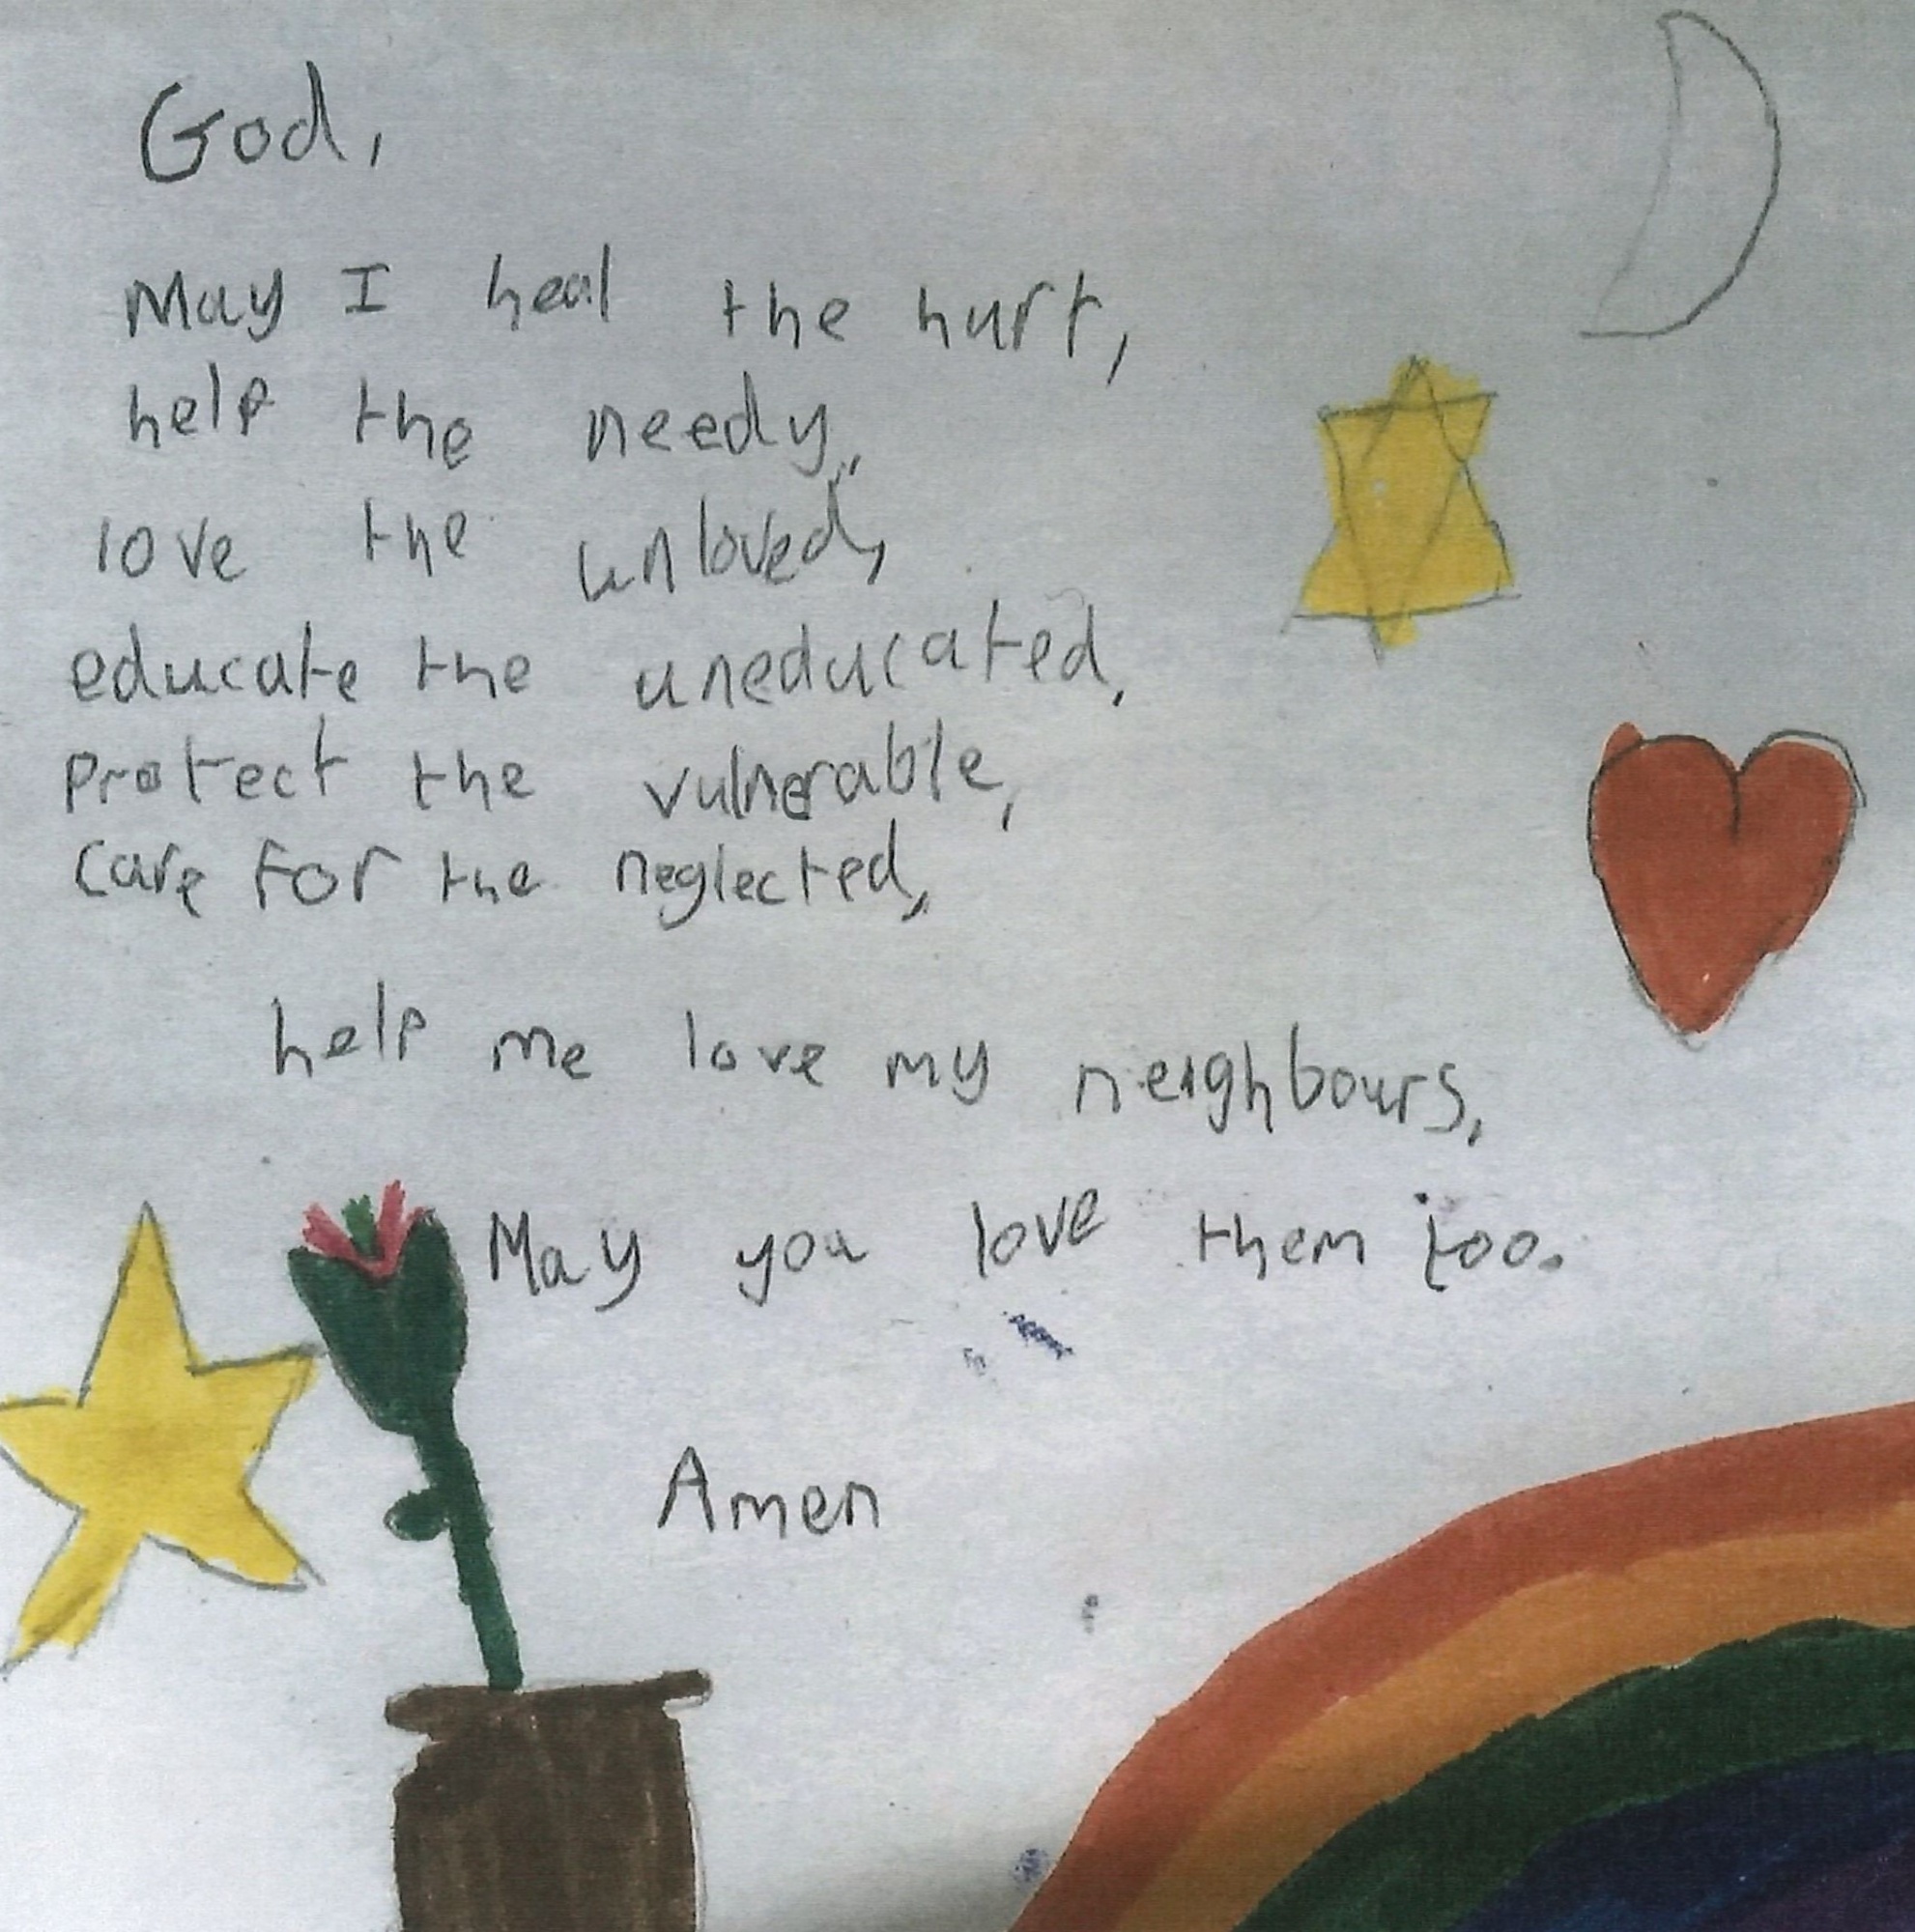 God,
May I heal the hurt,
help the needy,
love the unloved,
educate the uneducated,
protect the vulnerable,
care for the neglected,
help me love my neighbours,
May you love them too.
Amen